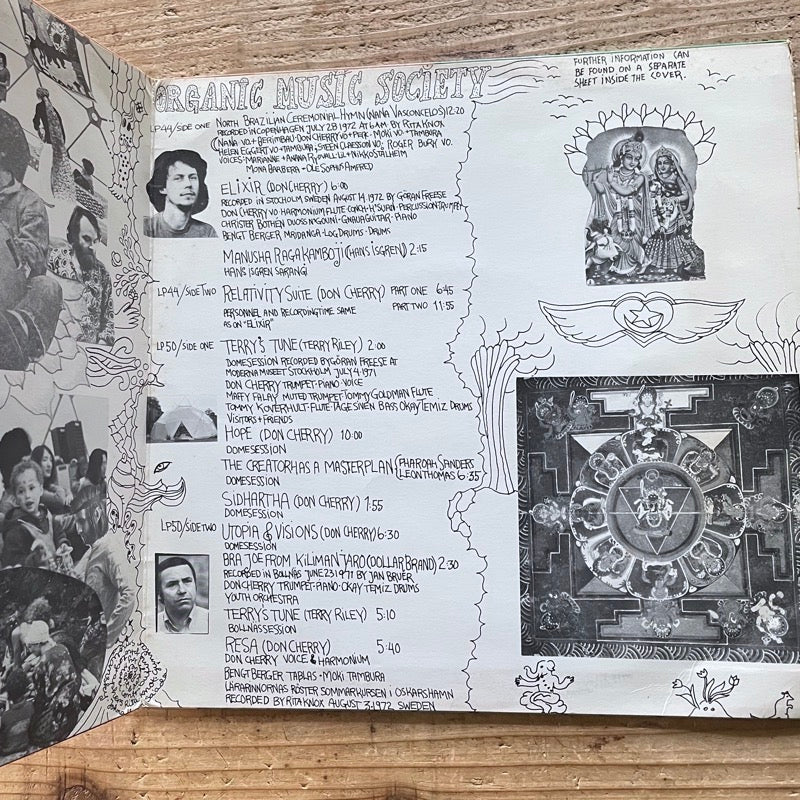 ORGANIC MUSIC SOCIETY
FURTHER INFORMATION CAN
BE FOUND ON A SEPARATE
SHEET INSIDE THE COVER.
LP44/SIDE ONE NORTH BRAZILIAN CEREMONIAL HYMN (NANA VASCONCELOS) 12:20
RECORDED IN COPENHAGEN JULY 28 1972 AT 6 AM BY RITA KNOX
NANA VO. + BERIMBAU · DON CHERRY VO + PERC · MOKI VO. + TAMBURA
HELEN EGGERT VO + TAMBURA; STEEN CLAESSON VO; ROGER BURK VO.
VOICES · MARIANNE +
MONA BARBERA - OLE
ELIXIR (DON CHERRY) 6:00
RECORDED IN STOCHOLM SWEDEN AUGUST 14, 1972 BY GÖRAN FREESE
DON CHERRY VO HARMONIUM FLUTE CONCH · H'SUAN · PERCUSSION TRUMPET
CHRISTER BOTHEN DUOSS N'GOUNI · GNAUA GUITAR · PIANO
BENGT BERGER MRIDANGA · LOG DRUMS · DRUMS
MANUSHA RAGA KAMBOJI (HANS ISGREN) 2:15
HANS ISGREN SARANGI
LP44/SIDE TWO RELATIVITY SUITE (DON CHERRY) PART ONE 6:45
PERSONNEL AND RECORDINGTIME SAME PART TWO 11:55
AS ON "ELIXIR"
LP50/SIDE ONE TERRY'S TUNE (TERRY RILEY) 2:00
DOMESESSION RECORDED BY GÖRAN FREESE AT
MODERNA MUSEET STOCKHOLM JULY 4 · 1971
DON CHERRY TRUMPET · PIANO · VOICE
MAFFY FALAY MUTED TRUMPET · TOMMY GOLDMAN FLUTE
TOMMY KOVERHULT · FLUTE · TAGE SIVEN BAS, OKAY TEMIZ DRUMS
VISITORS + FRIENDS
HOPE (DON CHERRY) 10:00
DOMESESSION
THE CREATOR HAS A MASTERPLAN (PHAROAH SANDERS
DOMESESSION LEON THOMAS 6:35
SIDHARTHA (DON CHERRY) 1:55
DOMESESSION
LP50/SIDE TWO UTOPIA & VISIONS (DON CHERRY) 6:30
DOMESESSION
BRA JOE FROM KILIMANJARO (DOLLAR BRAND) 2:30
RECORDED IN BOLLNÄS JUNE 23 1971 BY JAN BRUÉR
DON CHERRY TRUMPET · PIANO · OKAY TEMIZ DRUMS
YOUTH ORCHESTRA
TERRY'S TUNE (TERRY RILEY) 5:10
BOLLNÄSSESSION
RESA (DON CHERRY) 5:40
DON CHERRY VOICE & HARMONIUM
BENGT BERGER TABLAS · MOKI TAMBURA
LÄRARINNORNAS RÖSTER SOMMARKURSEN I OSKARSHAMN
RECORDED BY RITA KNOX AUGUST 3, 1972 SWEDEN